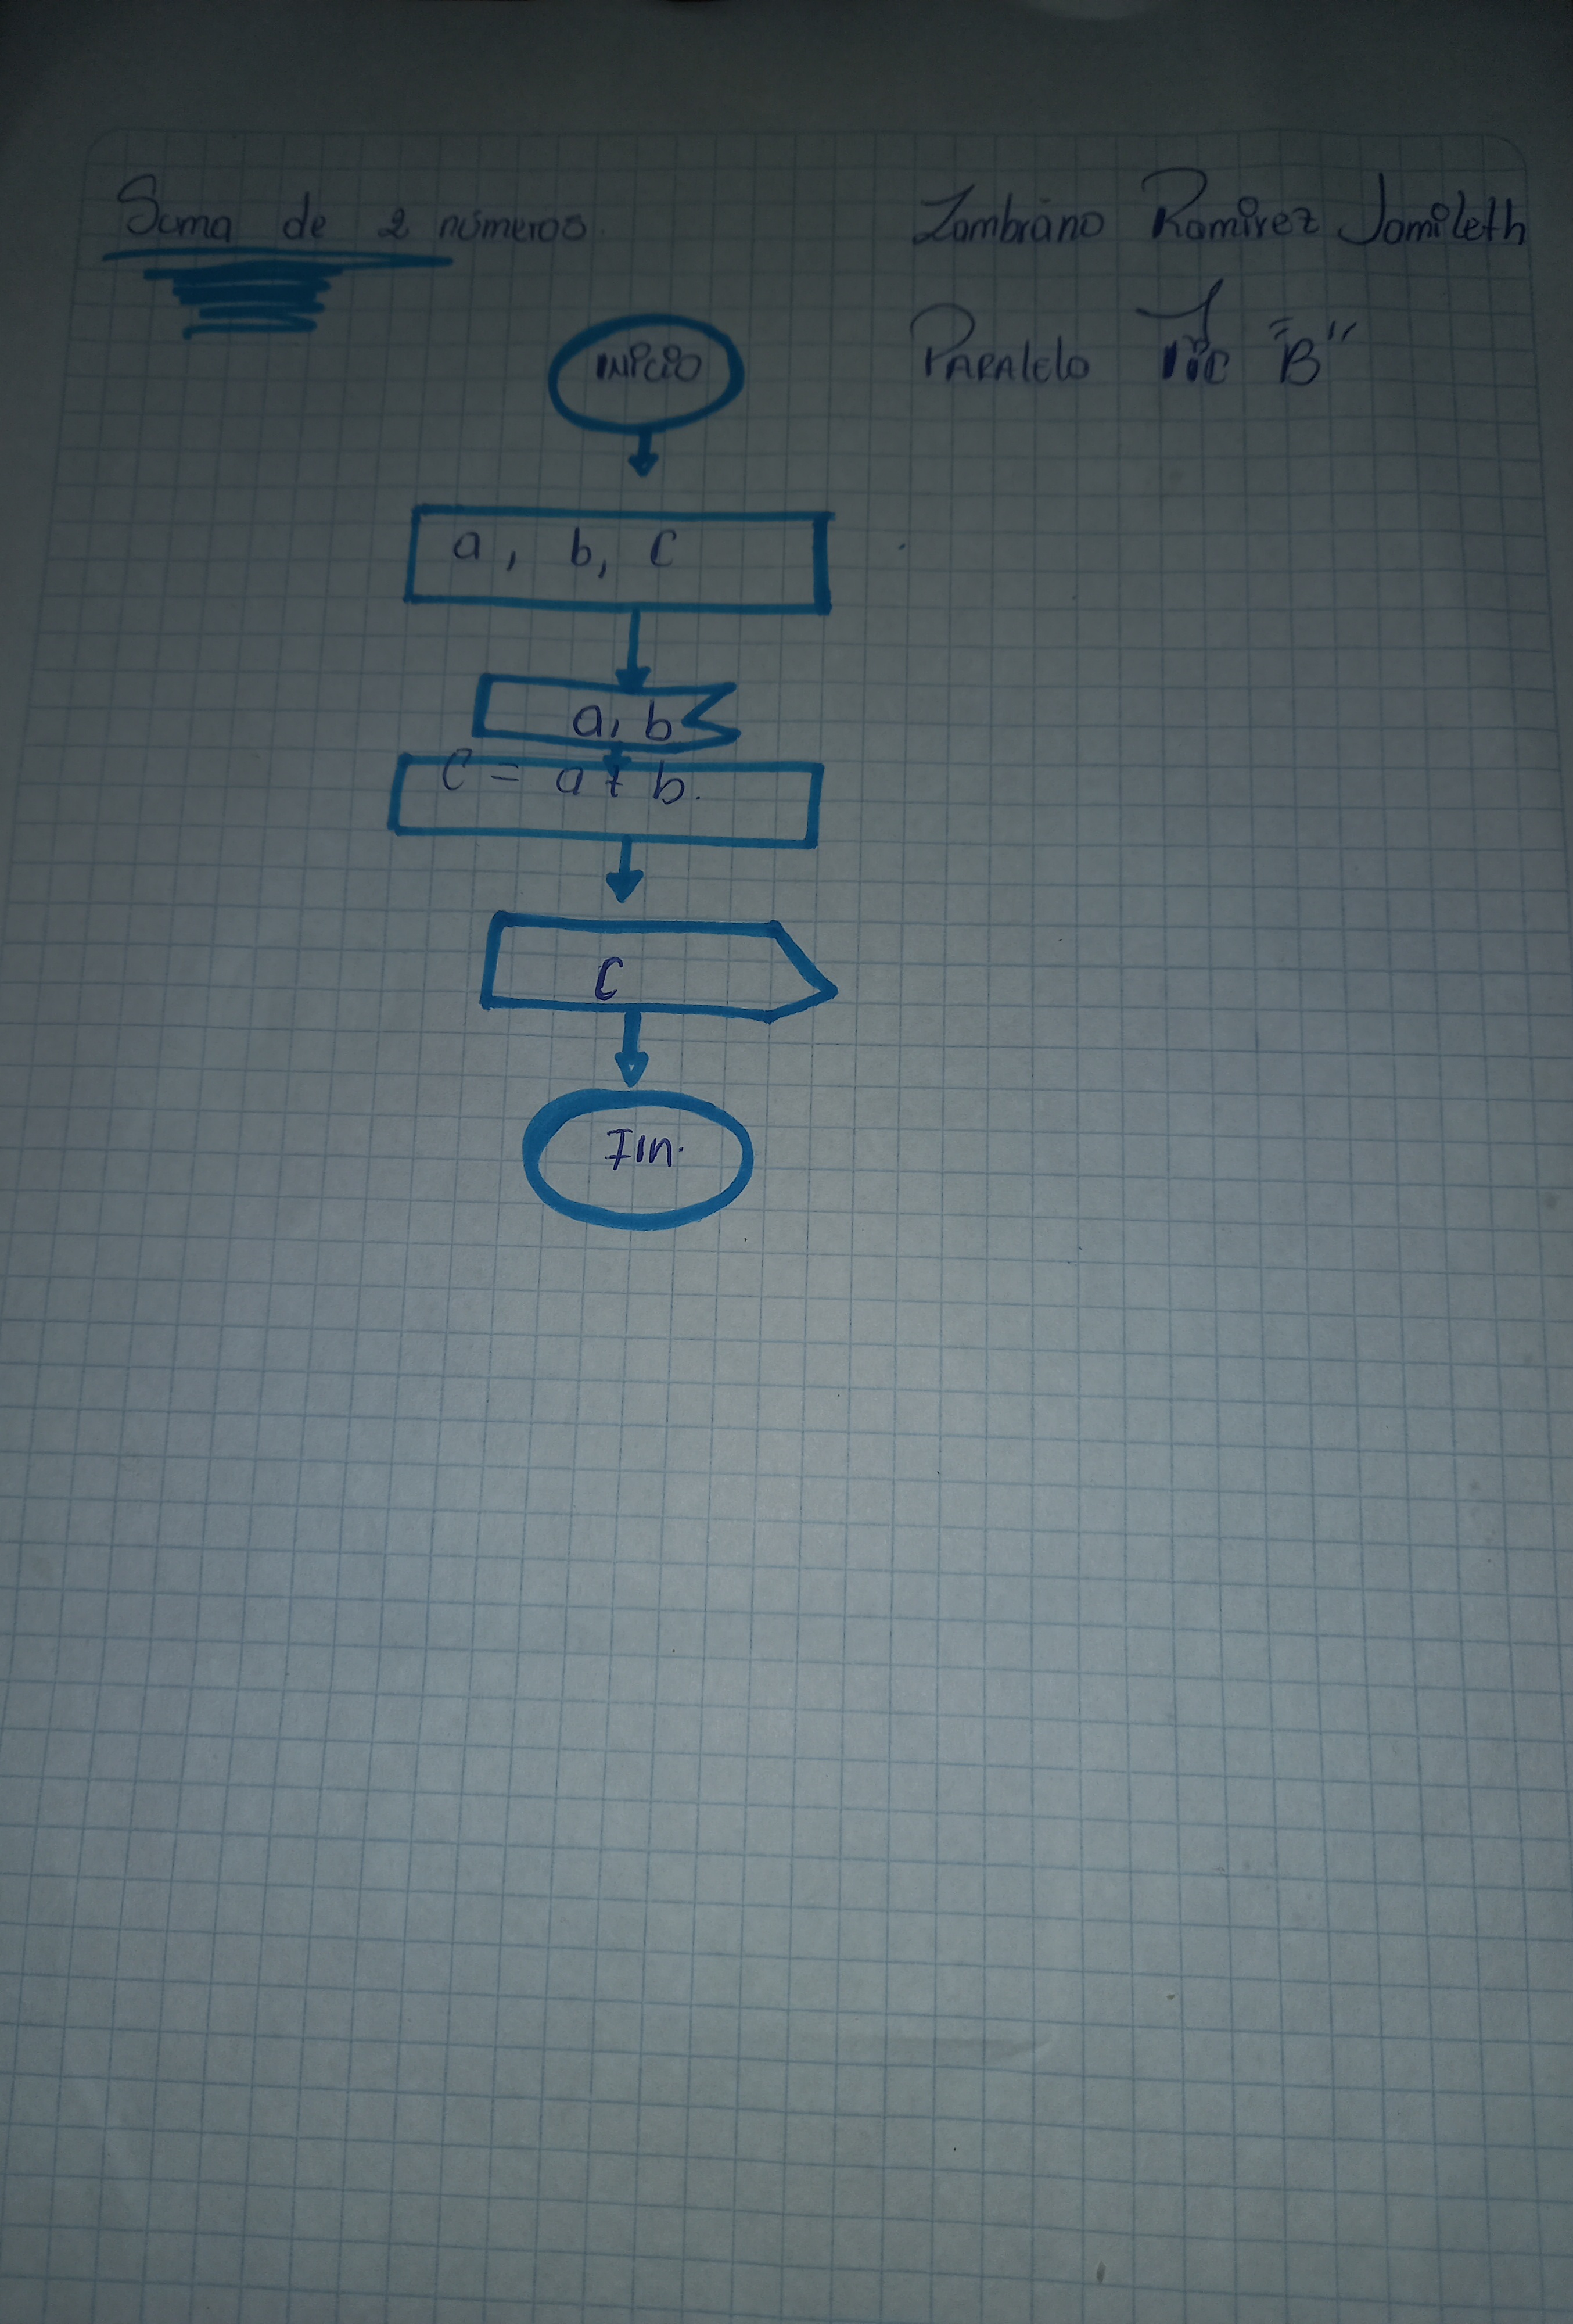 Suma de 2 números.
Zambrano Ramirez Jamileth
Paralelo "B"
INICIO
a, b, c
a, b
C = a + b.
C
Fin.